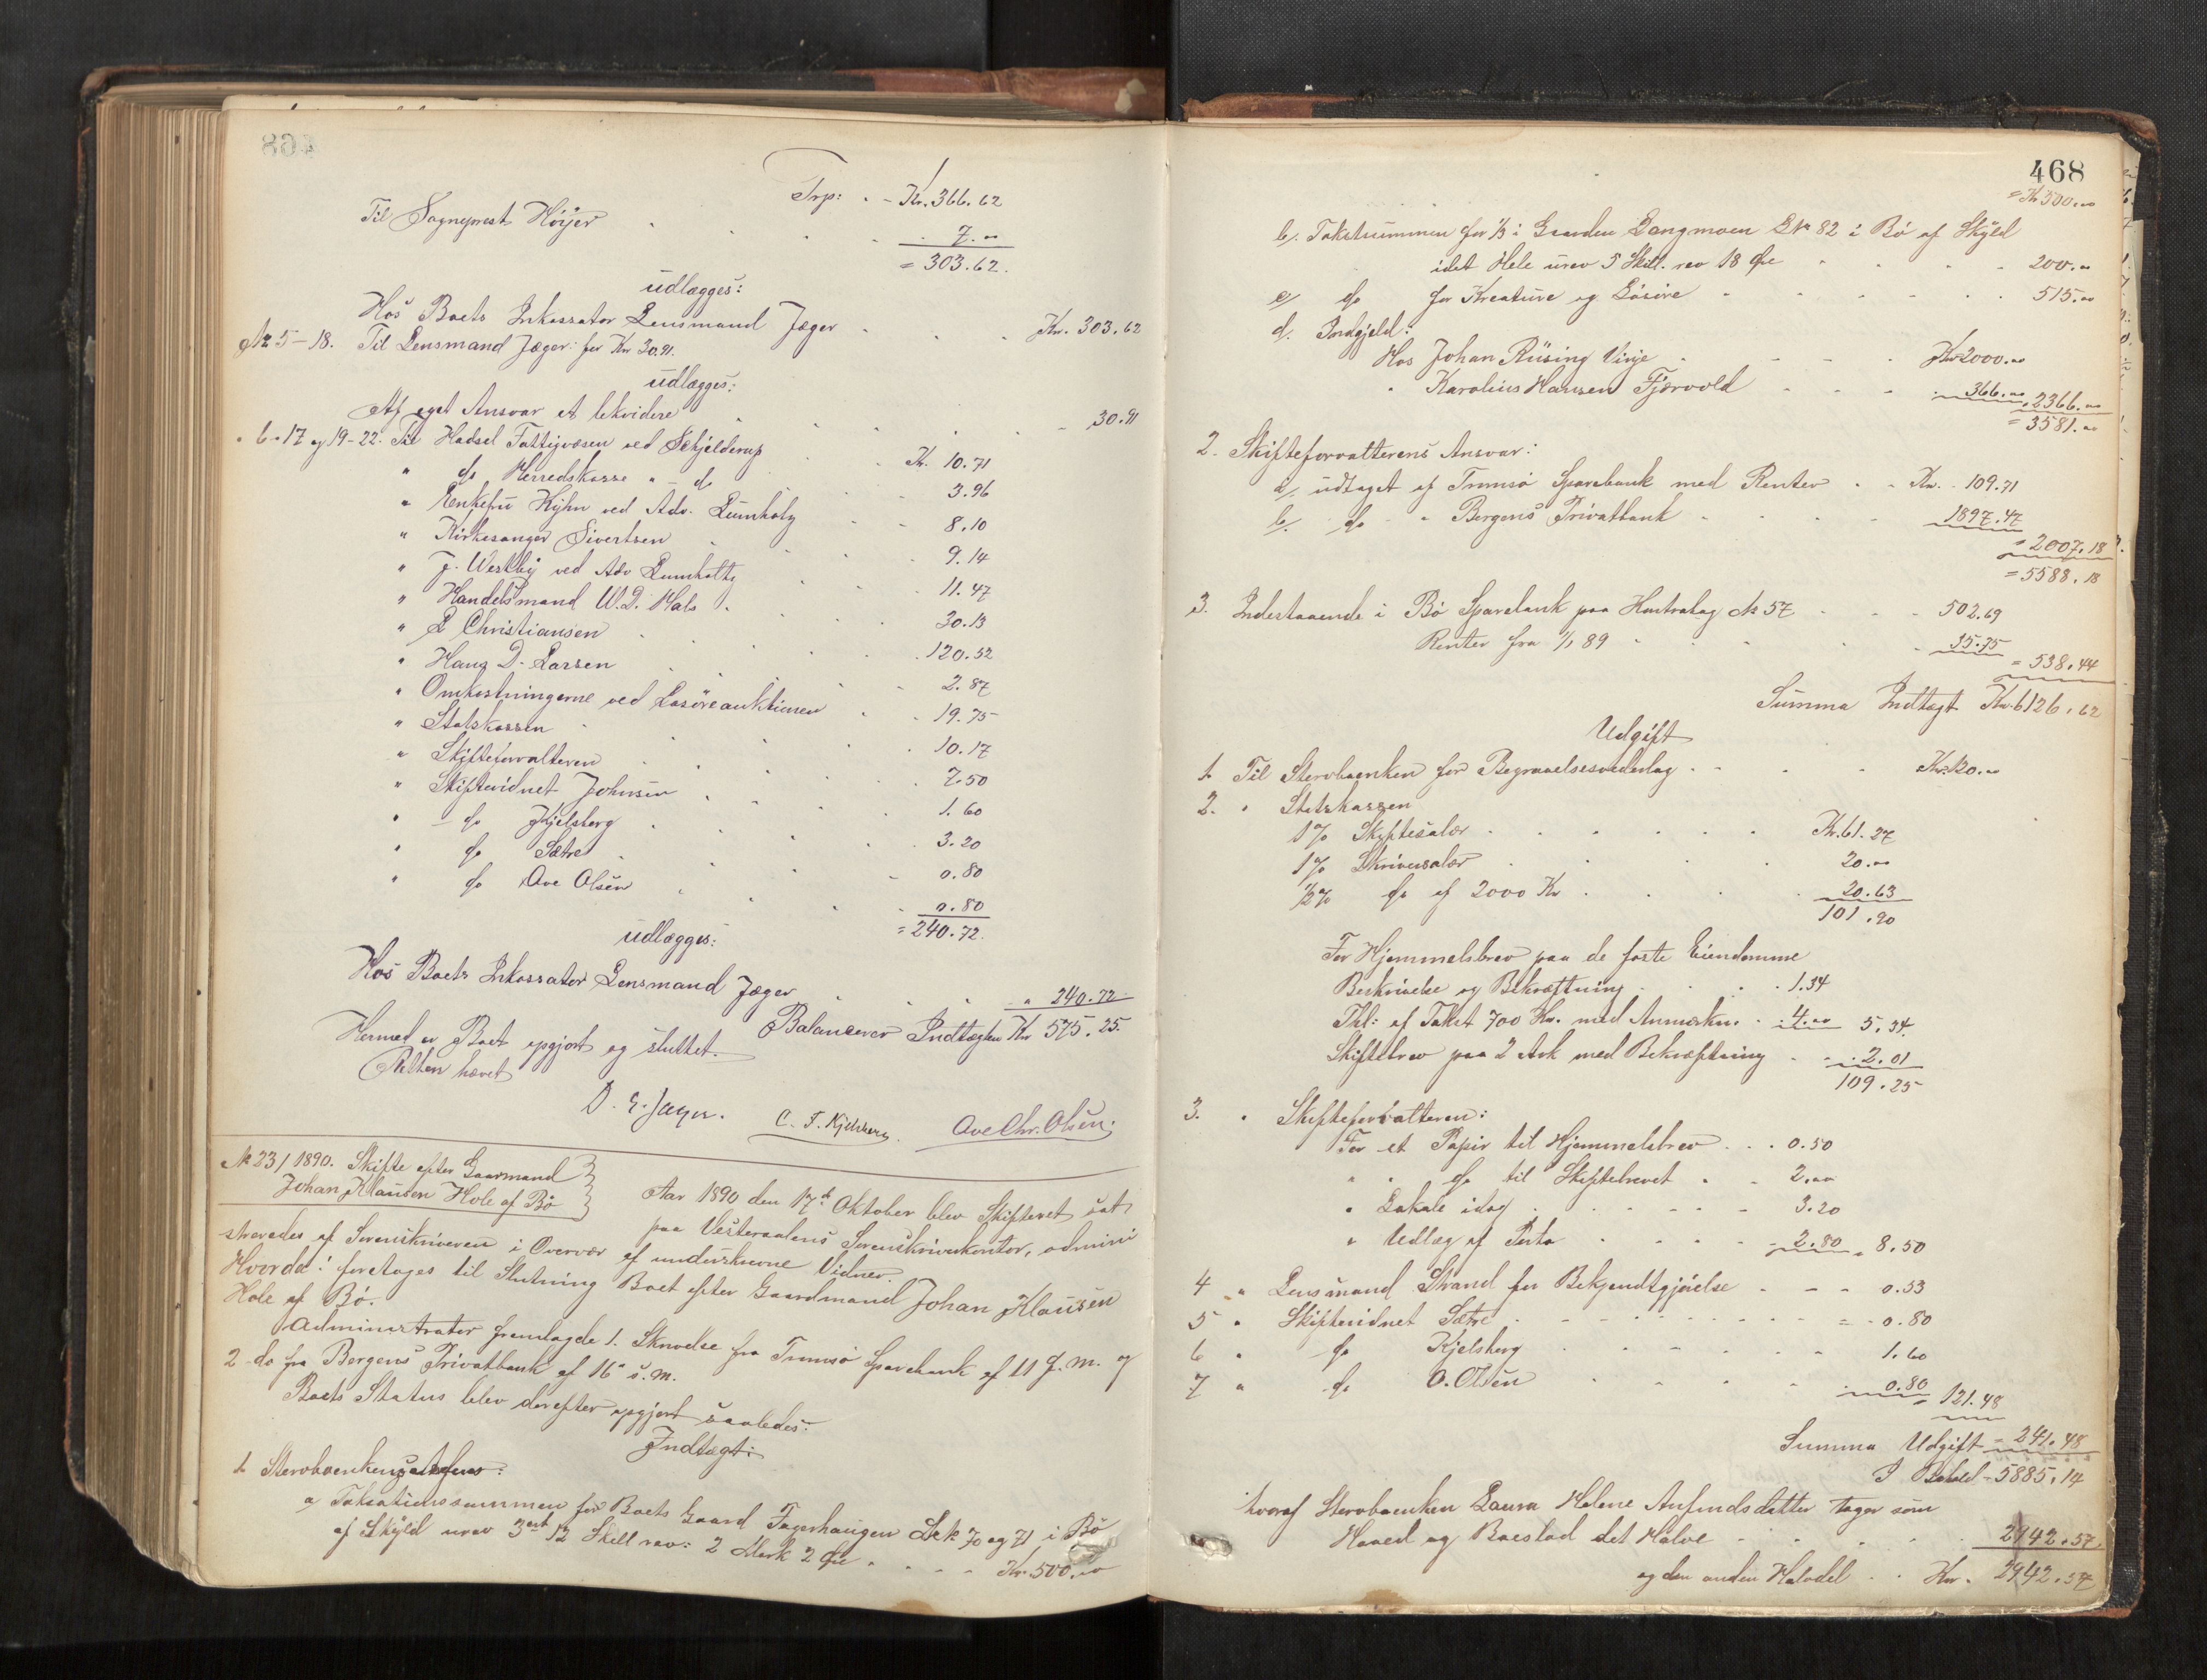 Trp: . - Kr. 366.62
Til Sogneprest Höyer . . . . 7.00
= 303.62.
udlægges:
Hos Boets Inkassator Lensmand Jæger . . . Kr. 303.62
№ 5-18. Til Lensmand Jæger: for Kr 30.91.
udlægges:
Af eget Ansvar at likvidere . . . . - 30.91
" 6-17 og 19-22. Til Hadsel Fattigvæsen ved Schjelderup . Kr. 10.71
" do Herredskasse " - do . . - 3.96
" Enkefru Kyhn ved Adv. Lumholtz - - 8.10
" Kirkesanger Sivertsen . . . 9.14
" J. Westby ved Adv Lumholtz . . 11.47
" Handelsmand W.D. Hals . . . 30.13
" L Christiansen . . . . 120.52
" Hans D. Larsen . . . . 2.87
" Omkostningerne ved Løsöreauktionen . . 19.75
" Statskassen . . . . 10.17
" Skifteforvalteren . . . . 7.50
" Skiftevidnet Johnsen . . . 1.60
" - do Kjelsberg . . . 3.20
" do Sætre . . . - 0.80
" do Ave Olsen . . . - 0.80
= 240.72.
udlægges:
Hos Boets Inkassator Lensmand Jæger . . . " 240.72
Balancerer Indtægten Kr 575.25.
Hermed er Boet opgjort og sluttet.
Retten hævet
D. E. Jæger. C. F. Kjelsberg. Ave Chr. Olsen.
№ 23/1890. Skifte efter Gaarmand
Johan Klausen Hole af Bö
Aar 1890 den 17de Oktober blev Skifteret sat
paa Vesteraalens Sorenskriverkontor, admini
streredes af Sorenskriveren i Overvær af underskrevne Vidner.
Hvorda: foretages til Slutning Boet efter Gaardmand Johan Klausen
Hole af Bö.
Administrator fremlagde 1. Skrivelse fra Tromsö Sparebank af 11 f. M. og
2 - do fra Bergens Privatbank af 16 s. M.
Boets Status blev derefter opgjort saaledes:
Indtægt:
1 Stervboenkens :
a) Taksationssummen for Boets Gaard Fagerhaugen L№ 70 og 71 i Bö
af Skyld urev 3 ort 12 Skill rev: 2 Mark 2 Öre . . . - Kr. 500.00
468
= Kr 500.00
b). Takstsummen for 1/3 i Gaarden Langmoen L№ 82 i Bö af Skyld
idet Hele urev 5 Skill. rev 18 Öre . . . . 200.00
c) do for Kreature og Lösöre - . . . . 515.00
d. Indgjeld:
Hos Johan Rüsing Vinje . - - . Kr 2000.00
" Karolius Hansen Fjærvold - - - . 366.00 " 2366.00
= 3581.00
2. Skifteforvalterens Ansvar:
a). udtaget af Tromsö Sparebank med Renter . . Kr. 109.71
b). do " Bergens Privatbank . . . - 1897.47
= 2007.18
= 5588.18
3. Indestaaende i Bö Sparebank paa Kontrabog № 57 - - - 502.69
Renter fra 1/1 89 . . . - 35.75
= 538.44
Summa Indtægt Kr. 6126.62
Udgift
1. Til Stervboenken for Begravelsesvederlag . . . Kr. 120.00
2. " Statskassen
1% Skiftesalær . . . . . Kr. 61.27
1% Skriversalær . . . . 20.00
1/2% do af 2000 Kr . . . . 20.63
101.90
For Hjemmelsbrev paa de faste Eiendomme
Beskrivelse og Bekræftning . . . 1.34
Thl: af Takst 700 Kr. med Anmærkn. . 4.00 5.34
Skiftebrev paa 2 Ark med Bekræftning - . 2.01
109.25
3. " Skifteforvalteren:
For et Papir til Hjemmelsbrev . . . 0.50
" " do til Skiftebrevet . . 2.00
" Lokale idag . . . . - 3.20
" Udlæg af Porto . . . - 2.80 " 8.50
4 " Lensmand Strand for Bekjendtgjörelse . - - 0.53
5 " Skiftevidnet Sætre . - - - - - = - 0.80
6 " do Kjelsberg . - . . . 1.60
7 " do O. Olsen . - - . . 0.80
= 121.48
Summa Udgift = 241.48
I Behold - 5885.14
hvoraf Stervboenken Laura Helene Anfindsdatter tager som
Hoved og Boeslod det Halve - . . . . 2942.57
og den anden Halvdel . . Kr. 2942.57